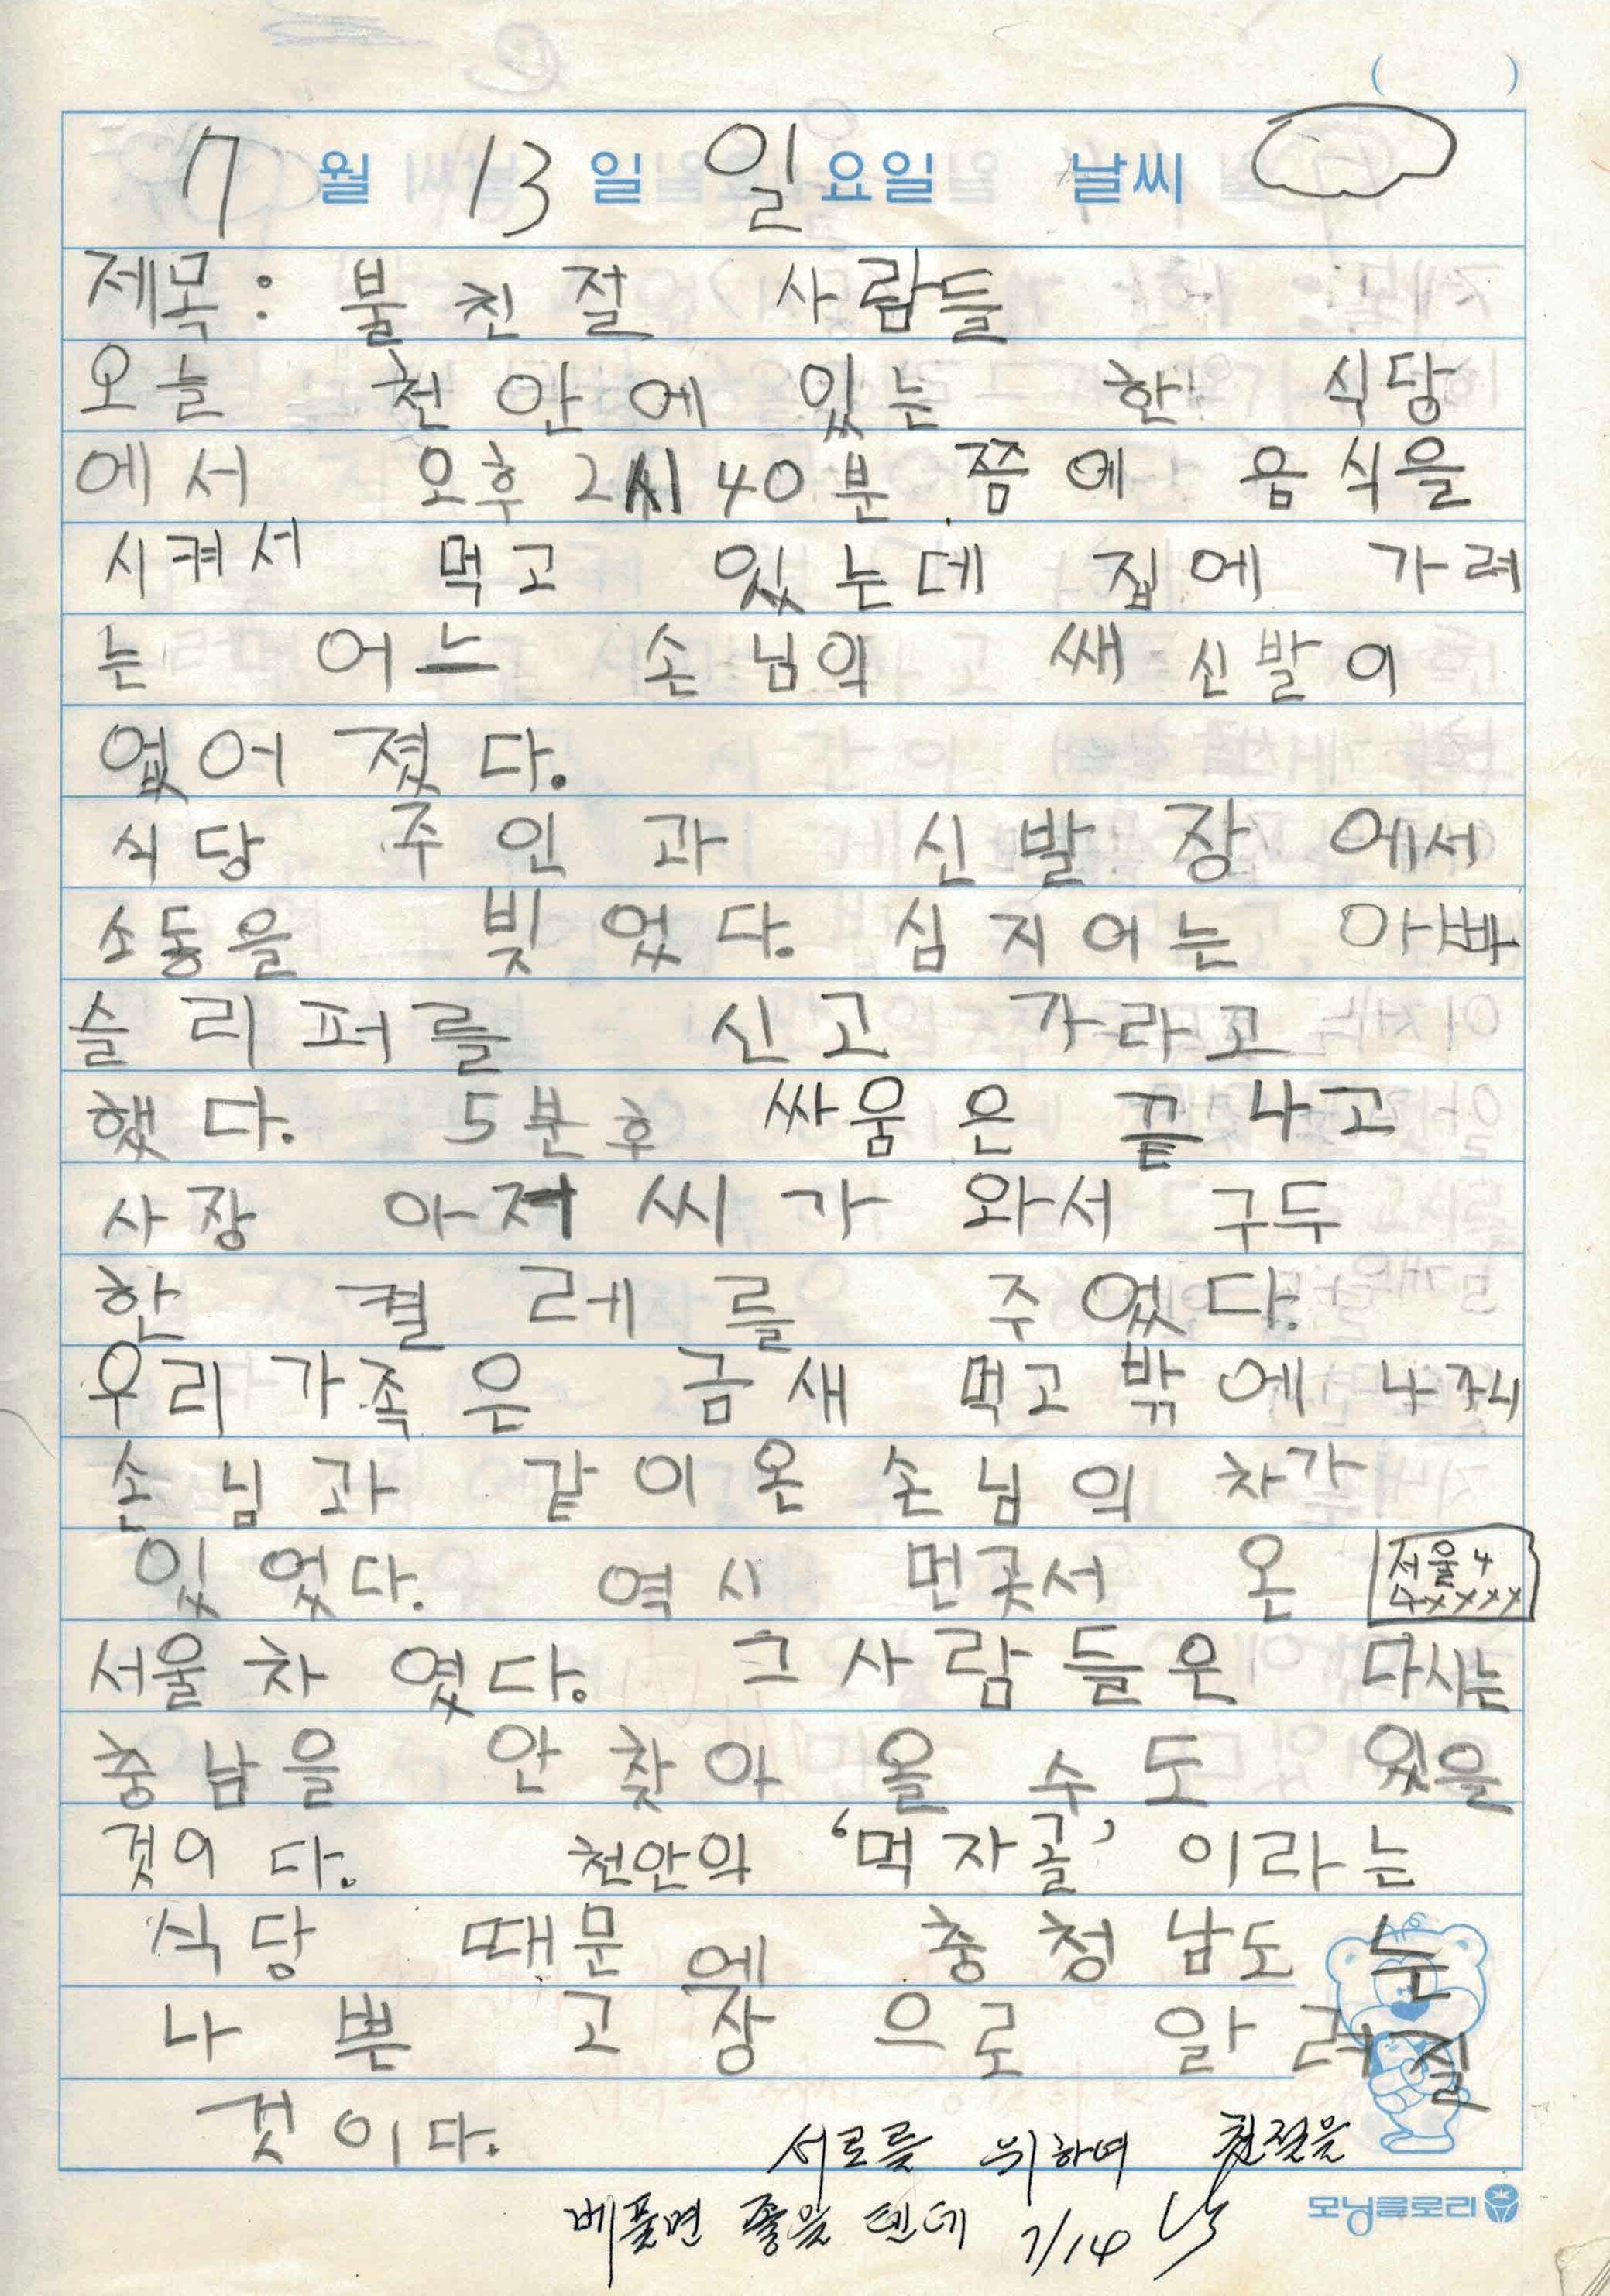 ( )
7월 13일 일요일 날씨
제목: 불친절 사람들
오늘 천안에 있는 한 식당
에서 오후 2시 40분 쯤에 음식을
시켜서 먹고 있는데 집에 가려
는 어느 손님의 쌔신발이
없어졌다.
식당 주인과 신발장에서
소동을 빚었다. 심지어는 아빠
슬리퍼를 신고 가라고
했다. 5분후 싸움은 끝나고
사장 아저씨가 와서 구두
한 켤레를 주었다.
우리가족은 금새 먹고 밖에 나고
손님과 같이 온 손님의 차가
있었다. 역시 먼곳서 온 서울4
4xxxx
서울차였다. 그사람들은 다시는
충남을 안 찾아 올 수도 있을
것이다. 천안의 '먹자골' 이라는
식당 때문에 충청남도는
나쁜 고장으로 알려질
것이다.
서로를 위하여 친절을
베풀면 좋을 텐데 7/14
모닝글로리